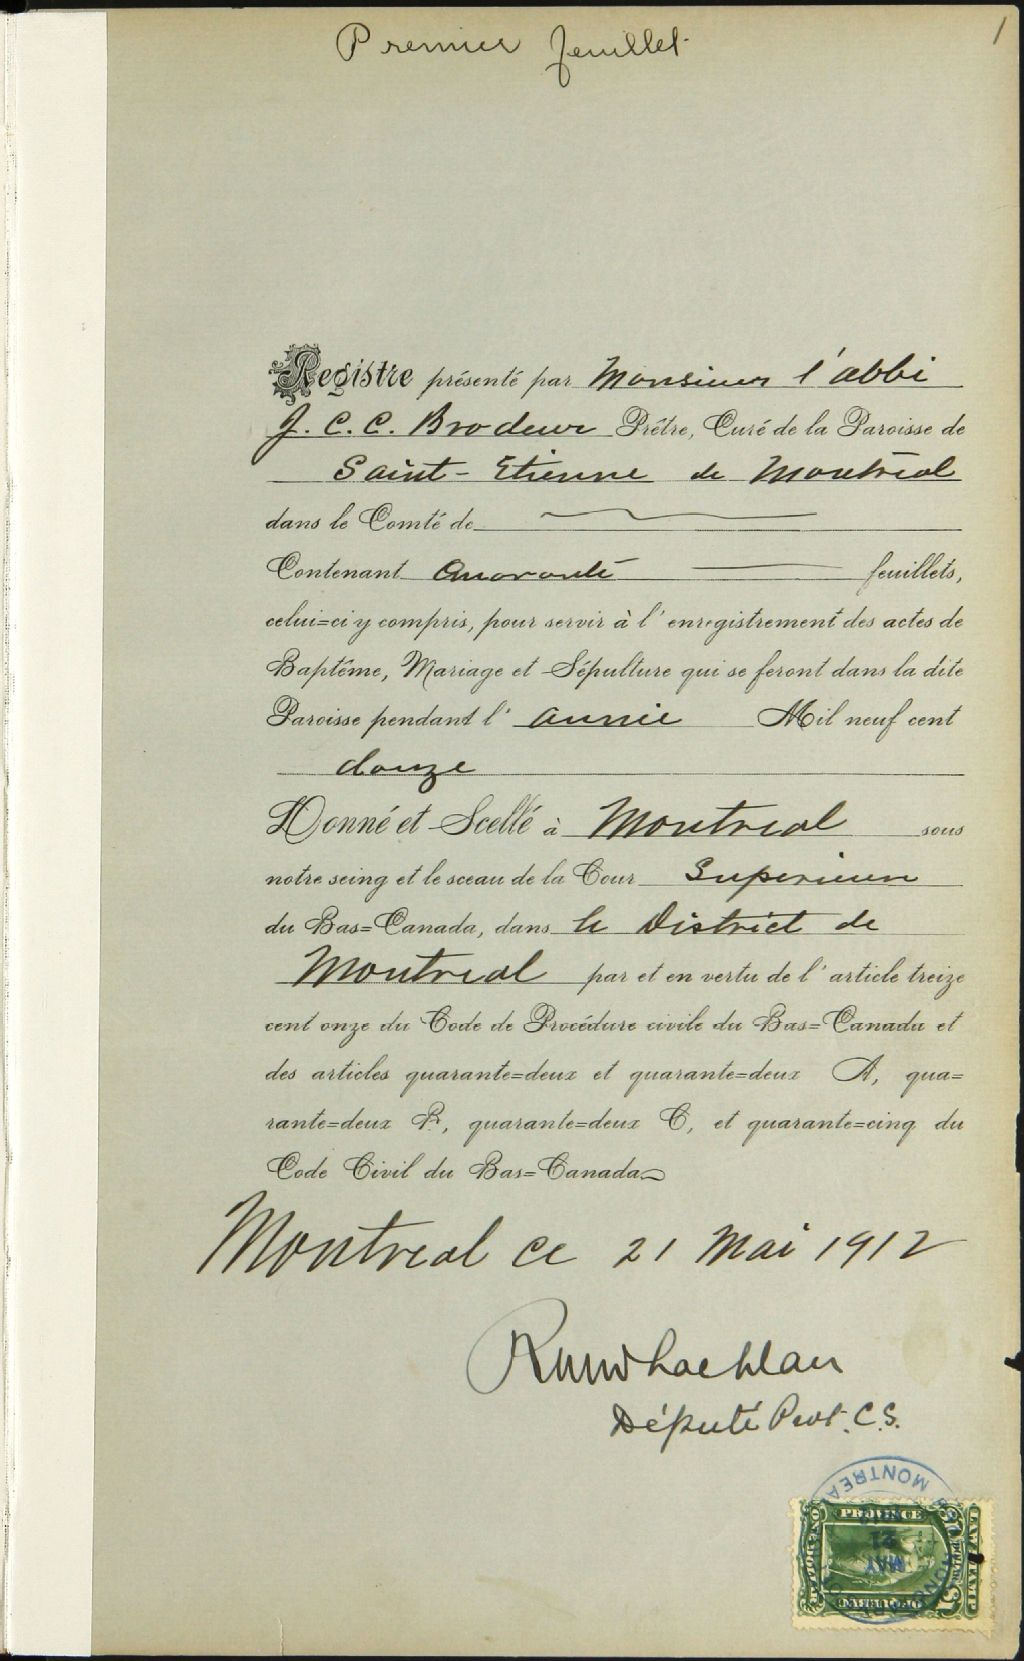 Premier feuillet
1
Registre présenté par Monsieur l'abbé
J. C. C. Brodeur Prêtre, Curé de la Paroisse de
Saint-Etienne de Montréal
dans le Comté de
Contenant Quarante feuillets,
celui=ci y compris, pour servir à l'enregistrement des actes de
Baptême, Mariage et Sépulture qui se feront dans la dite
Paroisse pendant l'année Mil neuf cent
douze
Donné et Scellé à Montreal sous
notre seing et le sceau de la Cour Superieure
du Bas=Canada, dans le District de
Montreal par et en vertu de l'article treize
cent onze du Code de Procédure civile du Bas=Canada et
des articles quarante=deux et quarante=deux A, qua=
rante=deux B, quarante=deux C, et quarante=cinq du
Code Civil du Bas=Canada
Montreal ce 21 Mai 1912
Député Prot. C.S.
MONTREAL
PROVINCE
21
MAY
ONE DOLLAR
LAW STAMP
OF QUEBEC